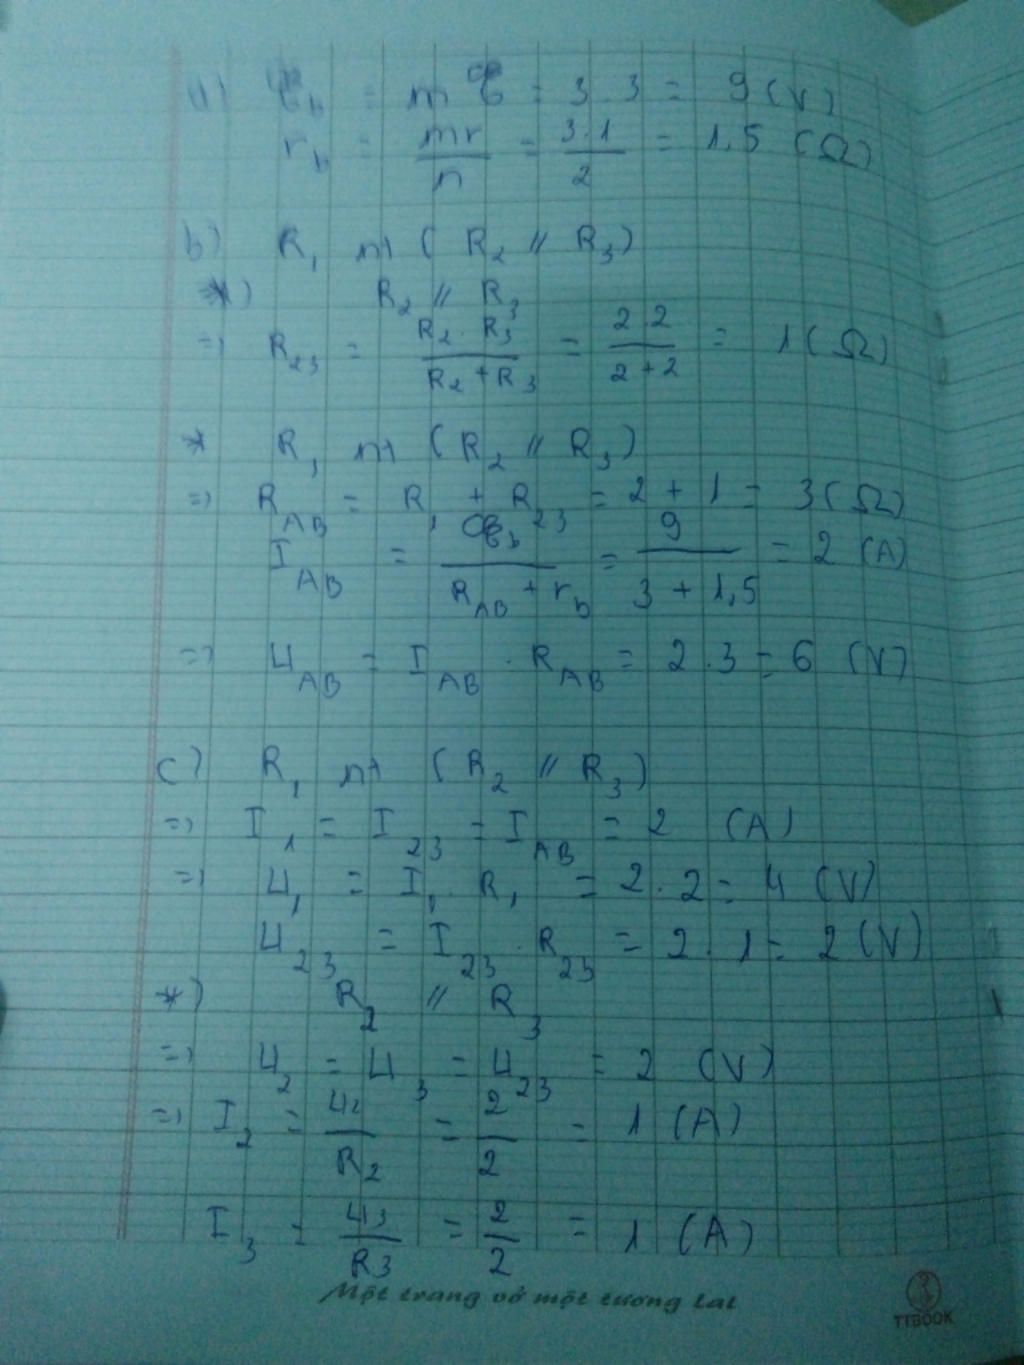 a) ℰb = mℰ = 3.3 = 9 (V)
rb = mr/n = 3.1/2 = 1,5 (Ω)
b) R1 nt (R2 // R3)
*) R2 // R3
=> R23 = R2.R3/R2+R3 = 2.2/2+2 = 1 (Ω)
* R1 nt (R2 // R3)
=> RAB = R1 + R23 = 2 + 1 = 3 (Ω)
IAB = ℰb/RAB + rb = 9/3 + 1,5 = 2 (A)
=> UAB = IAB . RAB = 2.3 = 6 (V)
c) R1 nt (R2 // R3)
=> I1 = I23 = IAB = 2 (A)
=> U1 = I1.R1 = 2.2 = 4 (V)
U23 = I23 . R23 = 2.1 = 2 (V)
*) R2 // R3
=> U2 = U3 = U23 = 2 (V)
=> I2 = U2/R2 = 2/2 = 1 (A)
I3 = U3/R3 = 2/2 = 1 (A)
Một trang vở một tương lai
TTBOOK